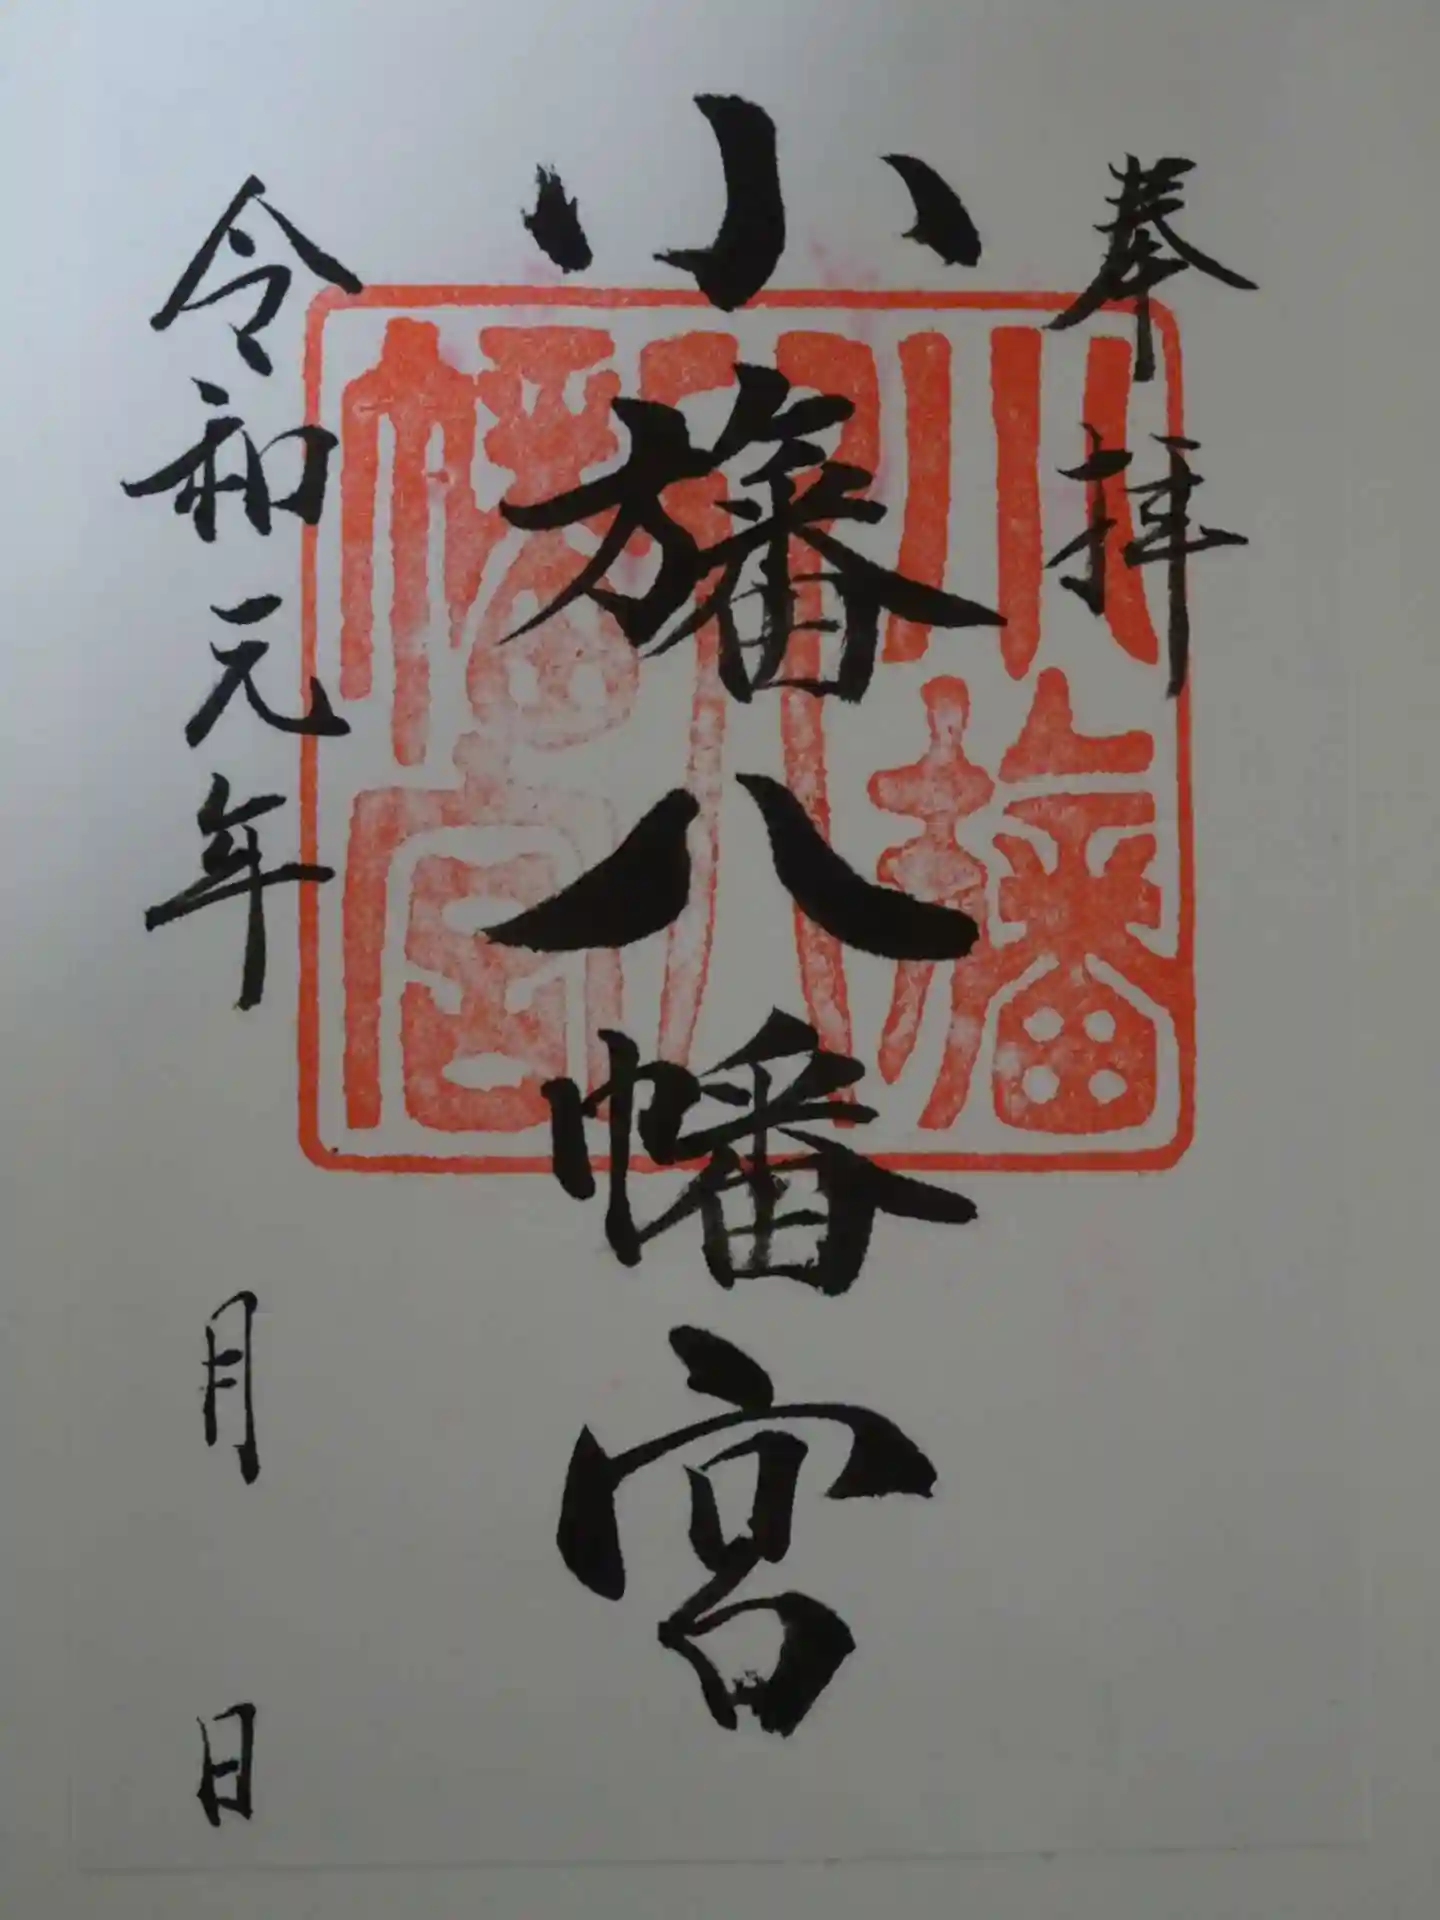 奉拝
小旛八幡宮
小旛
八
幡宮
令和元年 月 日